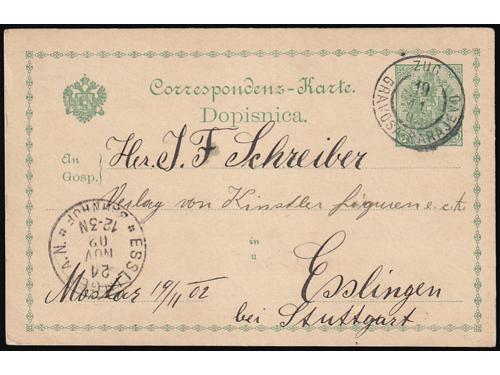 Correspondenz-Karte.
Dopisnica.
ZUG
19
GRAVOSA-SARAJEVO
An
Gosp.
Herr J. F. Schreiber
Verlag von Künstler figuren e.c.t.
in
u
Esslingen
bei Stuttgart
Mostar 19/11 02
ESSLINGEN A.N.
BAHNHOF
21
NOV
02
12-3N